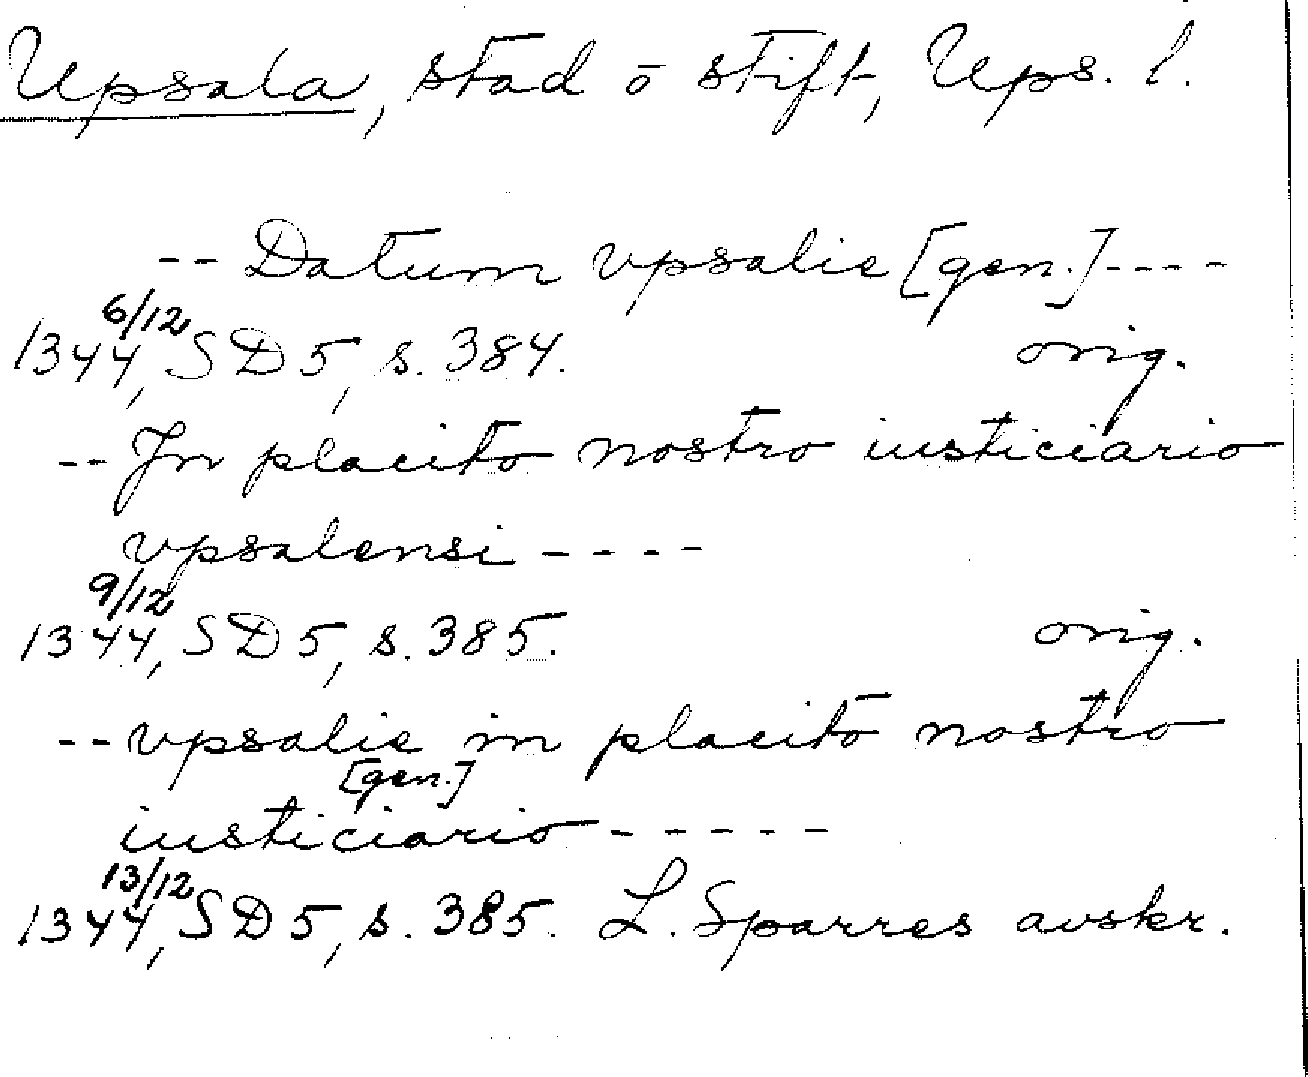 Upsala, stad o stift, Ups. l.
-- Datum vpsalie [gen.] ----
6/12
1344, SD 5, s. 384. orig.
-- In placito nostro iusticiario
vpsalensi ----
9/12
1344, SD 5, s. 385. orig.
-- vpsalie in placito nostro
[gen.]
iusticiario -----
13/12
1344, SD 5, s. 385. L. Sparres avskr.